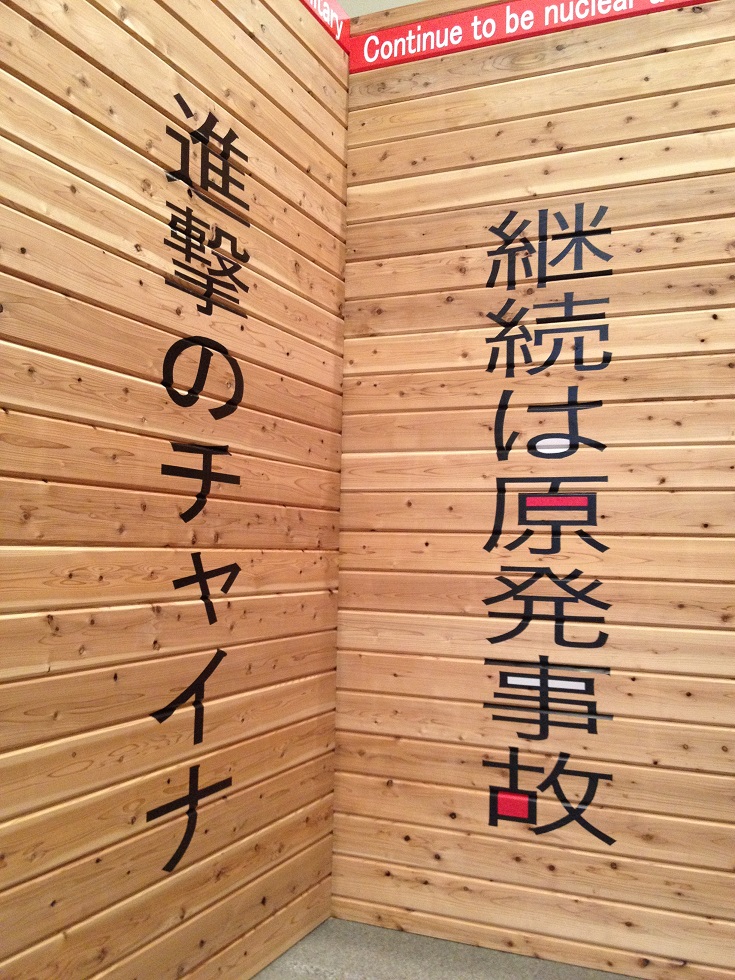 Continue to be nuclear
継続は原発事故
進撃のチャイナ